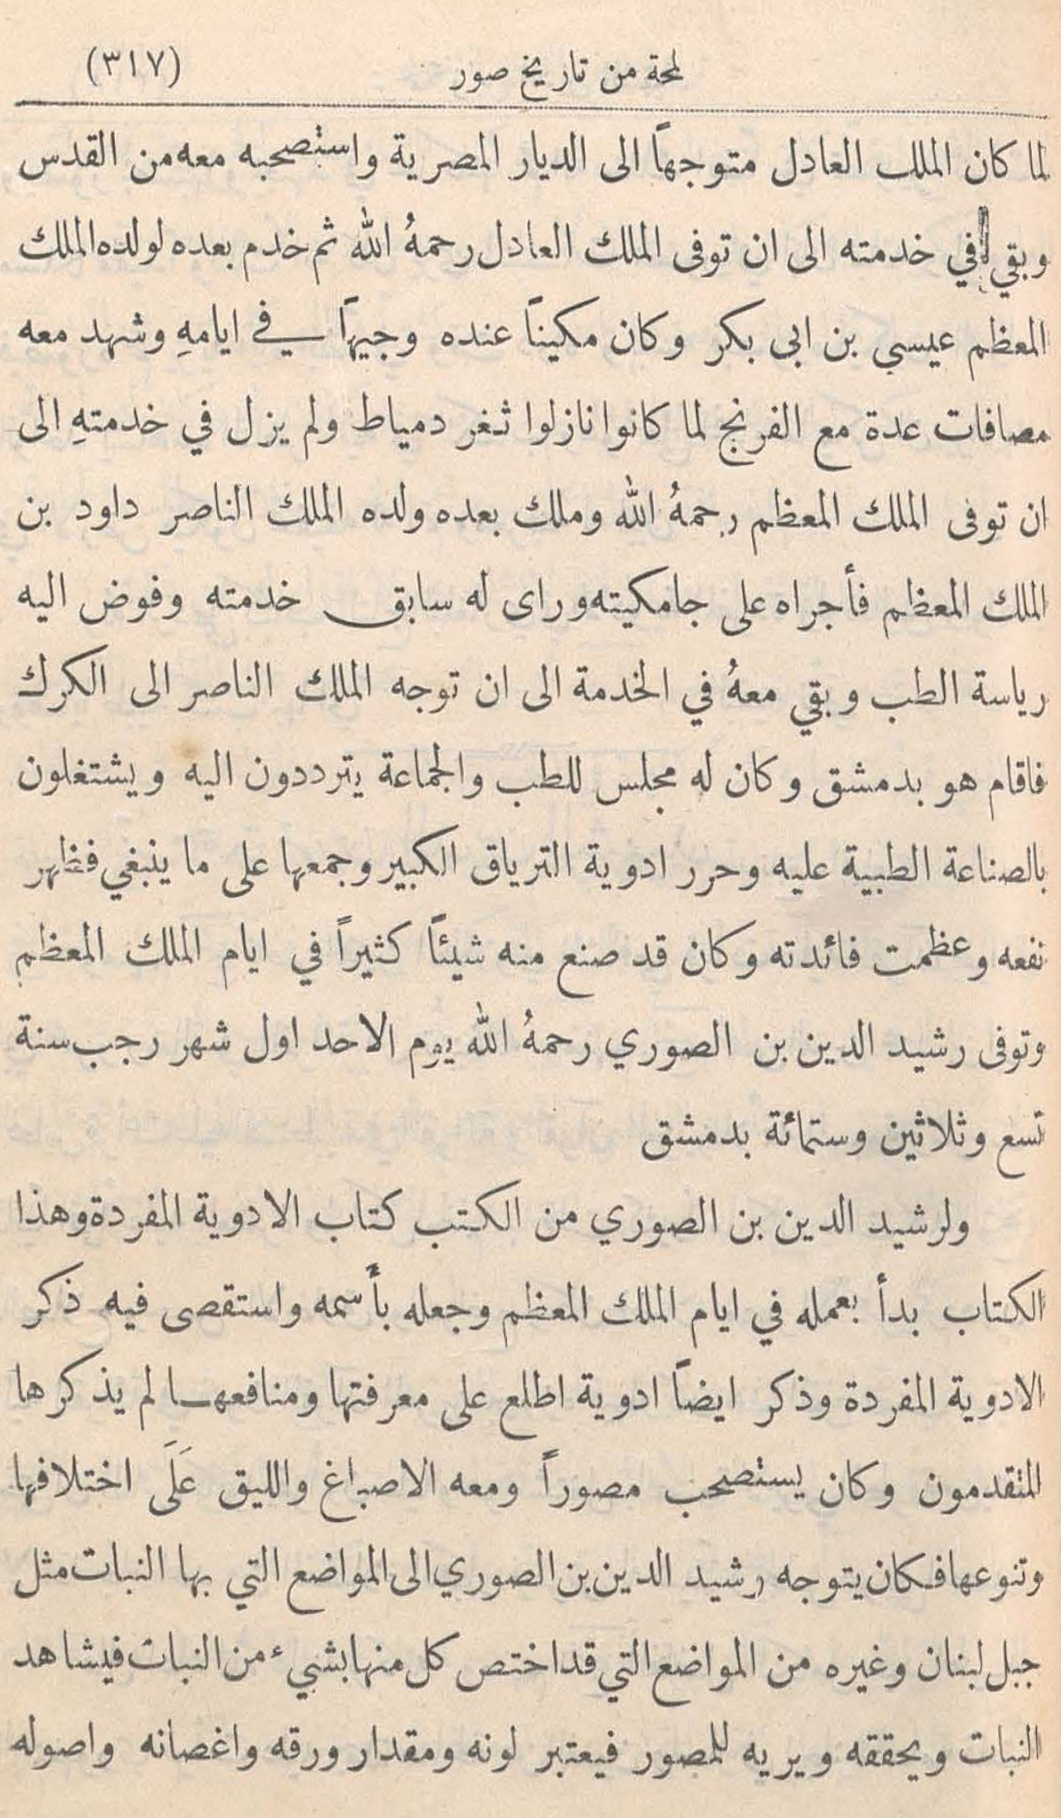 لمحة من تاريخ صور (٣١٧)
لما كان الملك العادل متوجهاً الى الديار المصرية واستصحبه معه من القدس
وبقي في خدمته الى ان توفى الملك العادل رحمهُ الله ثم خدم بعده لولده الملك
المعظم عيسى بن ابى بكر وكان مكيناً عنده وجيهاً في ايامهِ وشهد معه
مصافات عدة مع الفرنج لما كانوا نازلوا ثغر دمياط ولم يزل في خدمتهِ الى
ان توفى الملك المعظم رحمهُ الله وملك بعده ولده الملك الناصر داود بن
الملك المعظم فأجراه على جامكيته وراى له سابق خدمته وفوض اليه
رياسة الطب وبقي معهُ في الخدمة الى ان توجه الملك الناصر الى الكرك
فاقام هو بدمشق وكان له مجلس للطب والجماعة يترددون اليه ويشتغلون
بالصناعة الطبية عليه وحرر ادوية الترياق الكبير وجمعها على ما ينبغي فظهر
نفعه وعظمت فائدته وكان قد صنع منه شيئاً كثيراً في ايام الملك المعظم
وتوفى رشيد الدين بن الصوري رحمهُ الله يوم الاحد اول شهر رجب سنة
تسع وثلاثين وستمائة بدمشق
ولرشيد الدين بن الصوري من الكتب كتاب الادوية المفردة وهذا
الكتاب بدأ بعمله في ايام الملك المعظم وجعله بأسمه واستقصى فيه ذكر
الادوية المفردة وذكر ايضاً ادوية اطلع على معرفتها ومنافعها لم يذكرها
المتقدمون وكان يستصحب مصوراً ومعه الاصباغ والليق عَلَى اختلافها
وتنوعها فكان يتوجه رشيد الدين بن الصوري الى المواضع التي بها النبات مثل
جبل لبنان وغيره من المواضع التي قد اختص كل منها بشيء من النبات فيشاهد
النبات ويحققه ويريه للمصور فيعتبر لونه ومقدار ورقه واغصانه واصوله